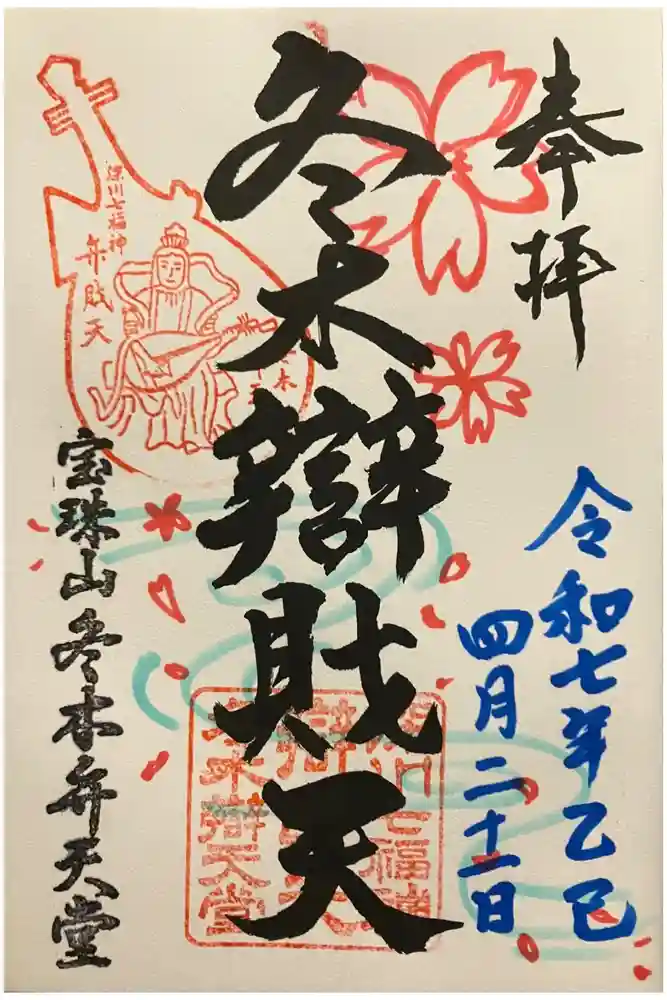 奉拝
令和七年乙巳
四月二十一日
冬木辯財天
深川七福神
弁財天
深川七福神
冬木辯天堂
宝珠山冬木弁天堂